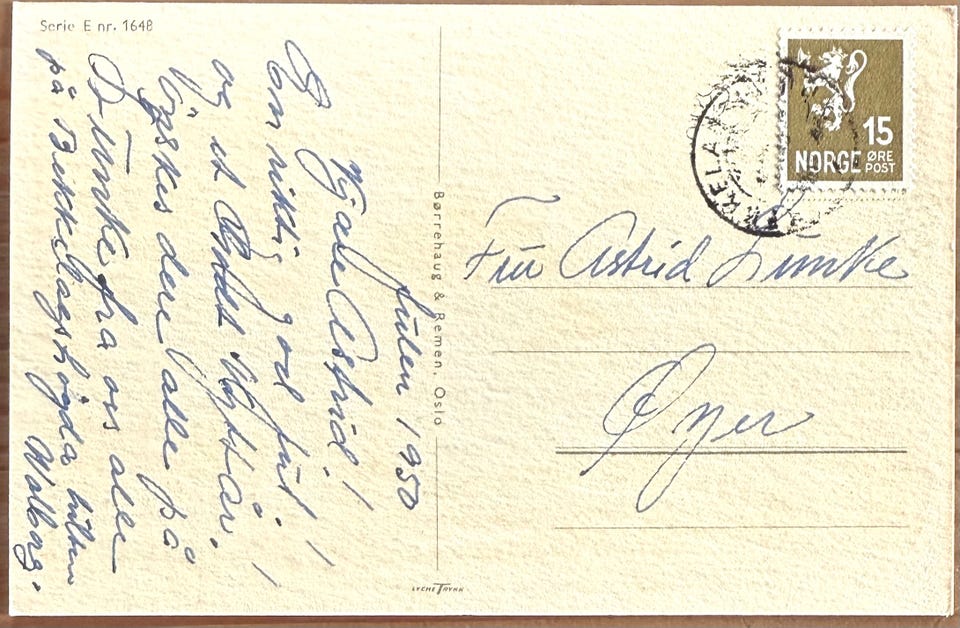 Serie E nr. 1648
Julen 1950
Kjære Astrid!
En riktig god jul!
og et Godt Nyttår!
ønskes dere alle på
Lunke fra oss alle
på Bekkelagshøgda hilsen
Valborg.
Børrehaug & Remen, Oslo
LYCHE TRYKK
15
NORGE ØRE
POST
Fru Astrid Lunke
Øyer